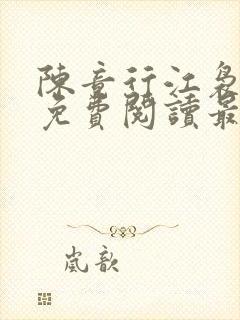 陳音行江裊
免費閱讀最
嵐歆